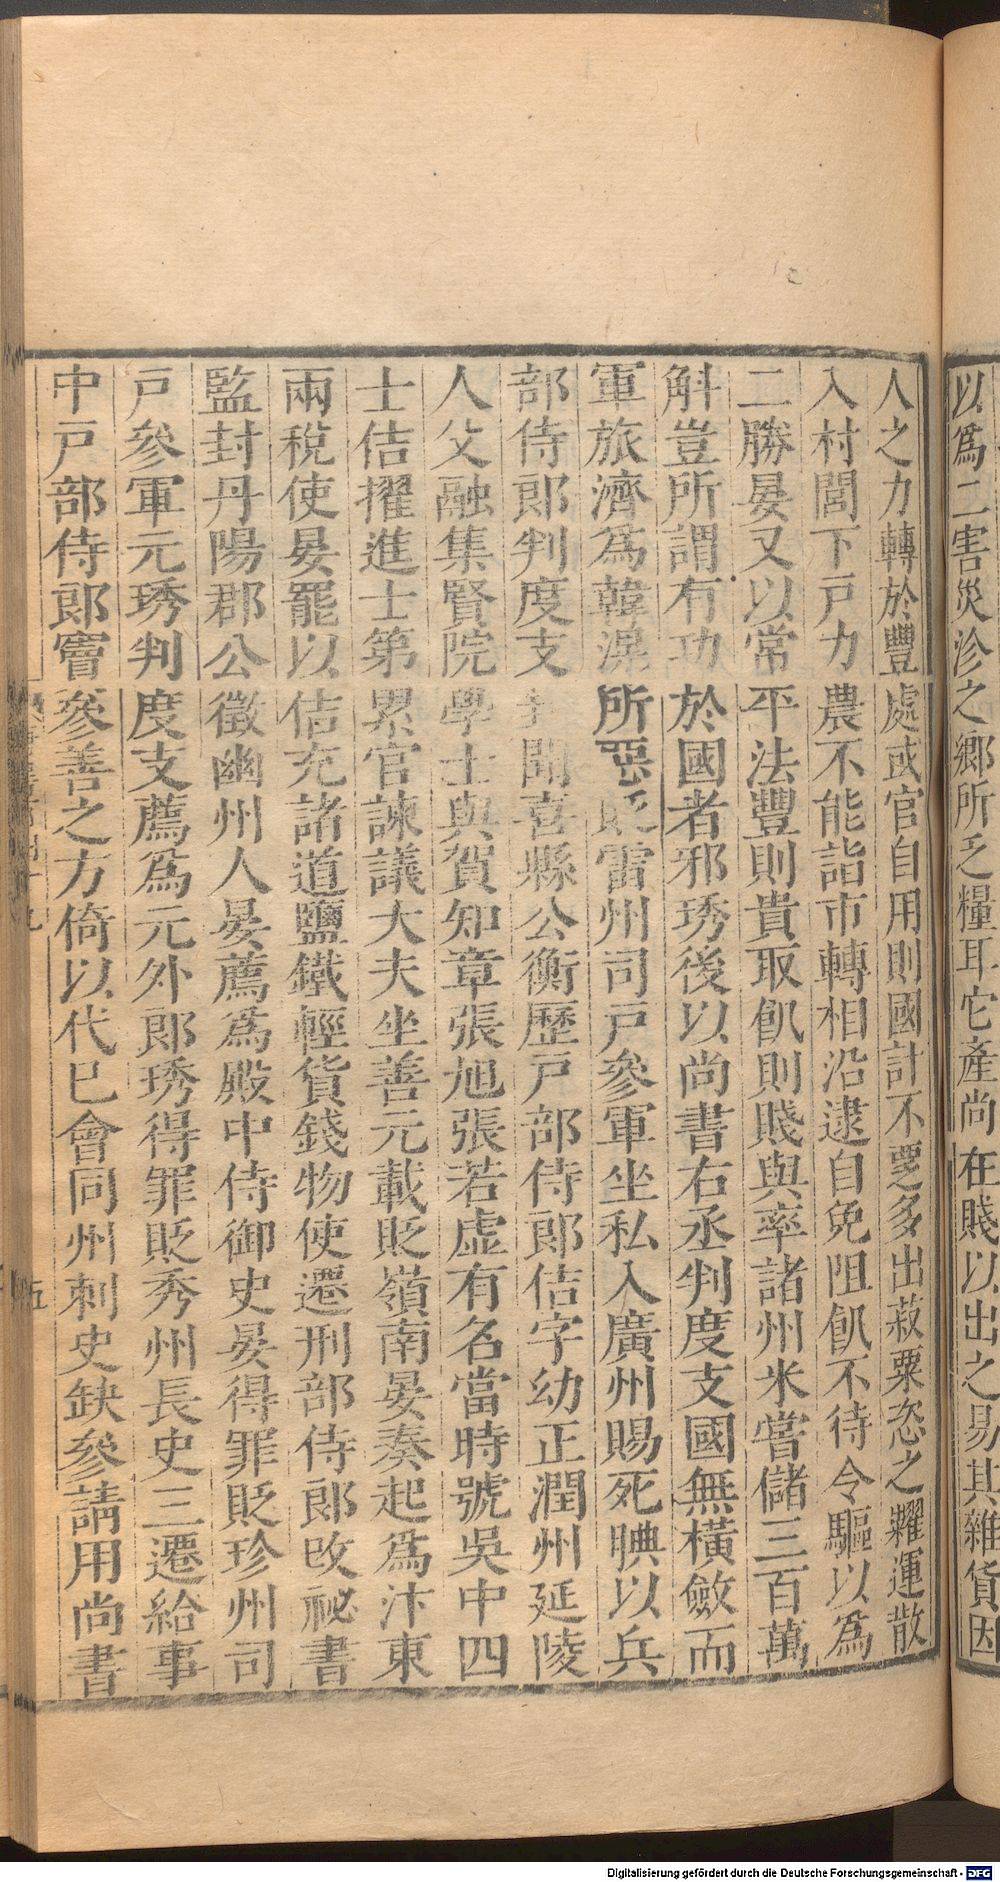 以爲二害災沴之鄉所乏糧耳它產尚在賤以出之易其雜貨因
人之力轉於豐處或官自用則國計不乏多出菽粟恣之糶運散
入村閭下戸力農不能詣市轉相沿逮自免阻飢不待令驅以爲
二勝晏又以常平法豐則貴取飢則賤與率諸州米嘗儲三百萬
斛豈所謂有功於國者邪琇後以尚書右丞判度支國無橫斂而
軍旅濟爲韓滉所惡貶雷州司戸參軍坐私入廣州賜死腆以兵
部侍郎判度支封聞喜縣公衡歷戸部侍郎佶字幼正潤州延陵
人父融集賢院學士與賀知章張旭張若虛有名當時號吳中四
士佶擢進士第累官諫議大夫坐善元載貶嶺南晏奏起爲汴東
兩稅使晏罷以佶充諸道鹽鐵輕貨錢物使遷刑部侍郎改祕書
監封丹陽郡公徵幽州人晏薦爲殿中侍御史晏得罪貶珍州司
戸參軍元琇判度支薦爲元外郎琇得罪貶秀州長史三遷給事
中戸部侍郎竇參善之方倚以代已會同州刺史缺參請用尚書
五
Digitalisierung gefördert durch die Deutsche Forschungsgemeinschaft - DFG